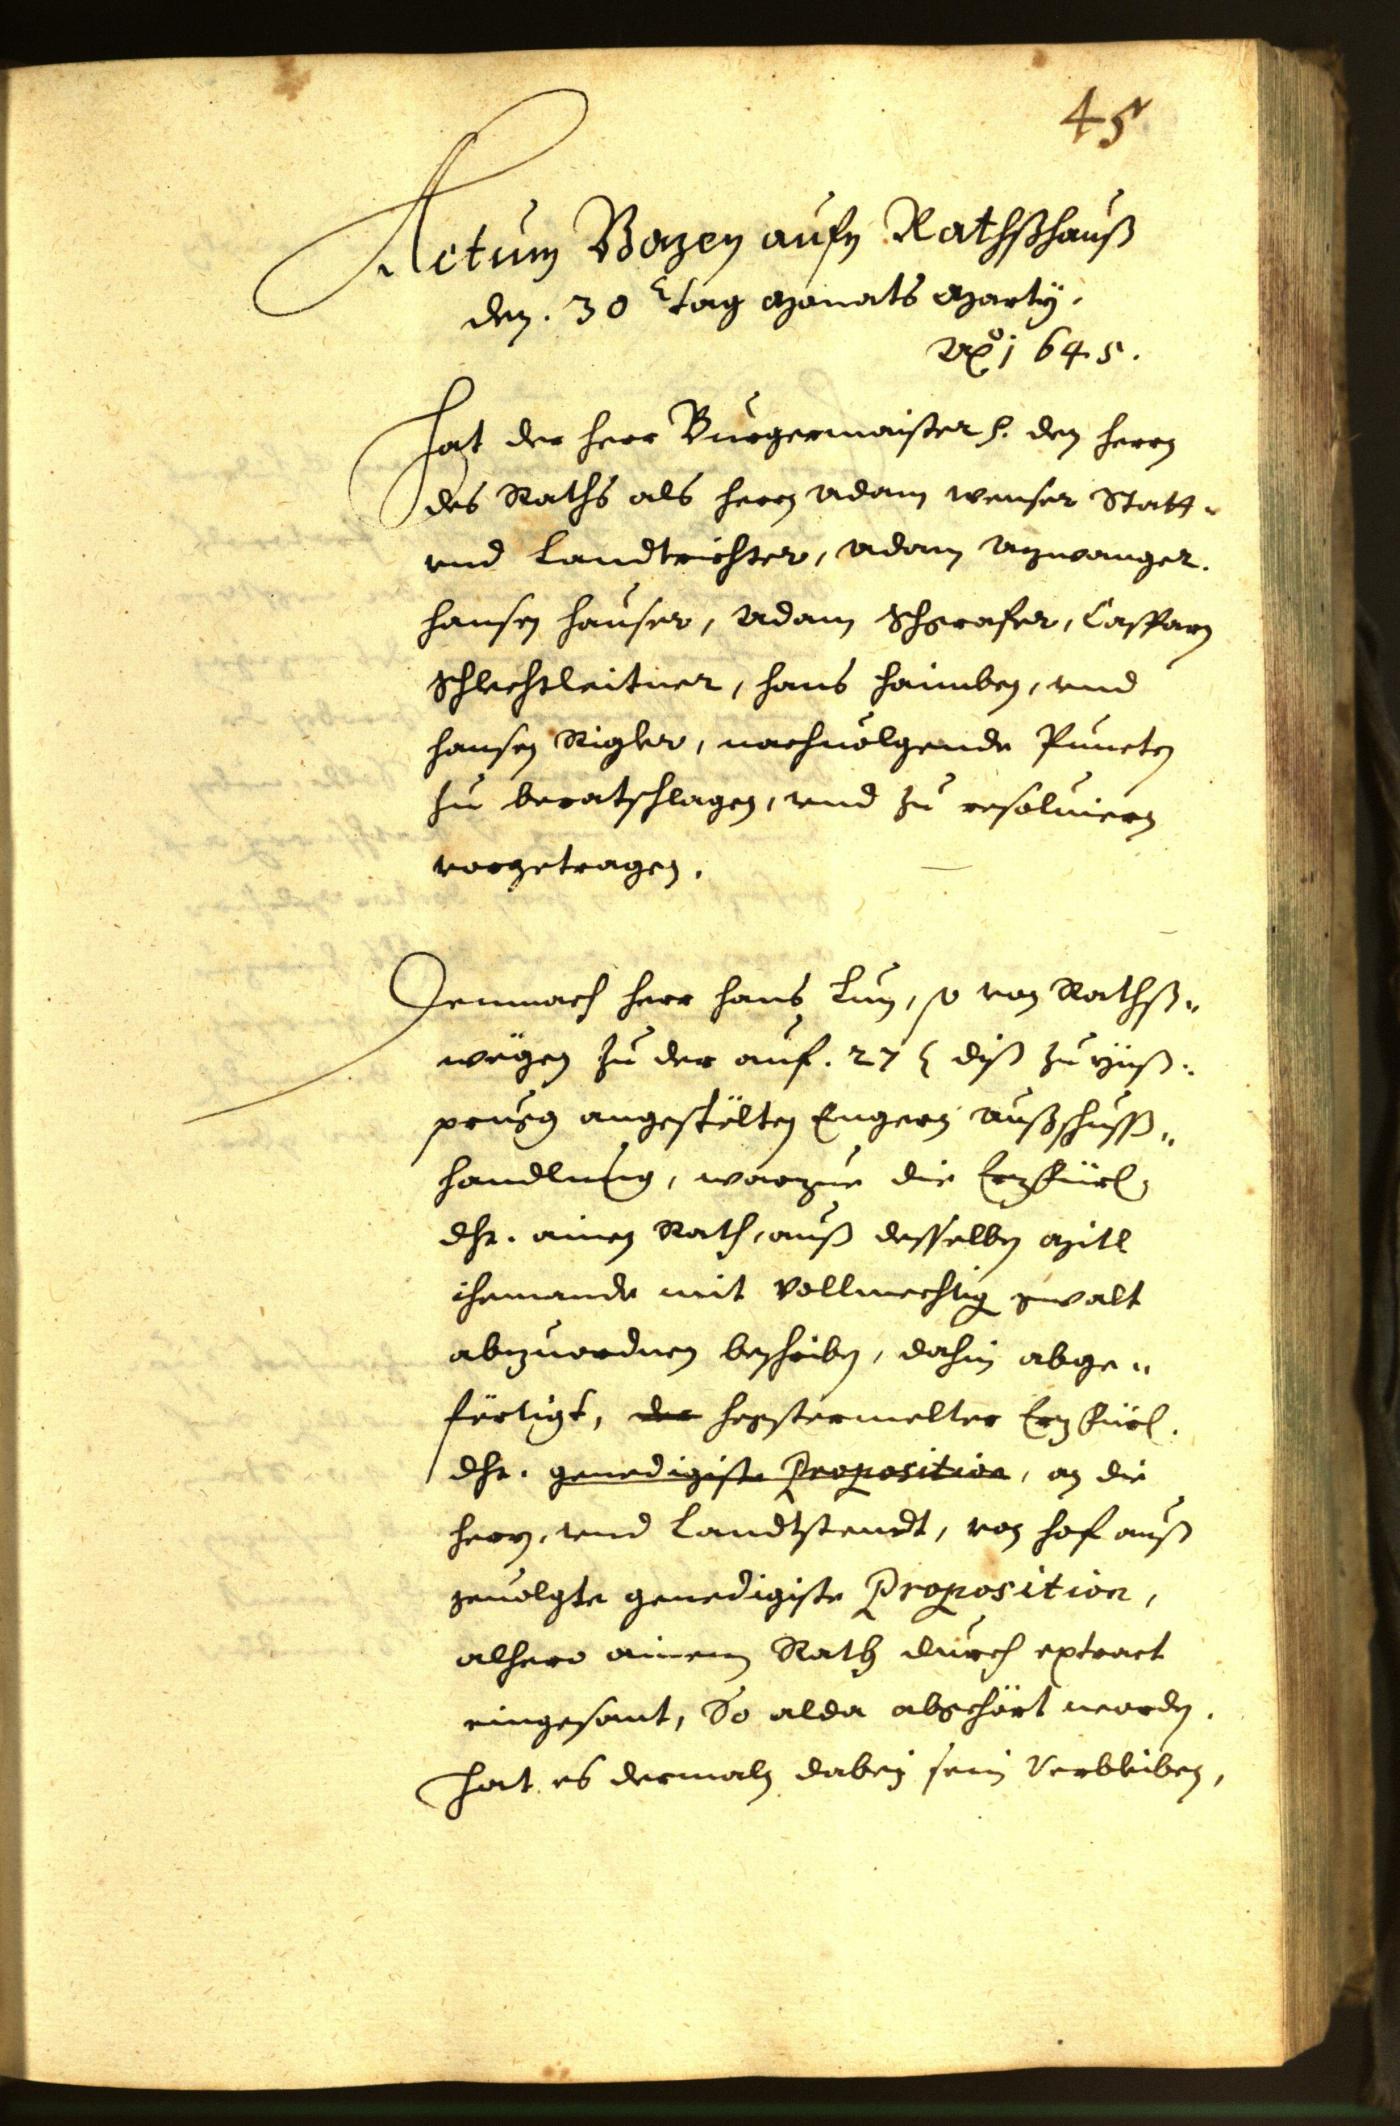 45
Actum Bozen aufn Rathßhauß
den .30 tag Monats Marty.
Ao 1645.
Hat der herr Burgermaister h. den herrn
des Raths als herrn Adam Wenser Statt-
vnd Landtrichter, Adam Azwanger.
hansen hauser, Adam Schgrafer, Casparn
Schlechtleitner, hans haimben, vnd
hansen Rigler, nachuolgende Puncten
zu beratschlagen, vnd zu resoluiern
vorgetragen.
Demnach herr hans Lun, so von Rathß-
wëgen zu der auf .27 diß zu Ynß-
prugg angestëlten Engern Außschuss-
handlung, warzue die Erzfürl.
dhr. ainen Rath, auß desselben Mitl
ihemande mit Vollmechtig gwalt
abzuordnen beschriben, dahin abge-
förtigt, der hegstermelter Erzfürl.
dhr. genedigiste Proposition, an die
herrn, vnd Landtstendt, von hof auß
geuolgte genedigiste Proposition,
alhero ainem Rath durch extract
eingesant, So alda abgehört worden.
Hat es dermaln dabey sein Verbleiben,